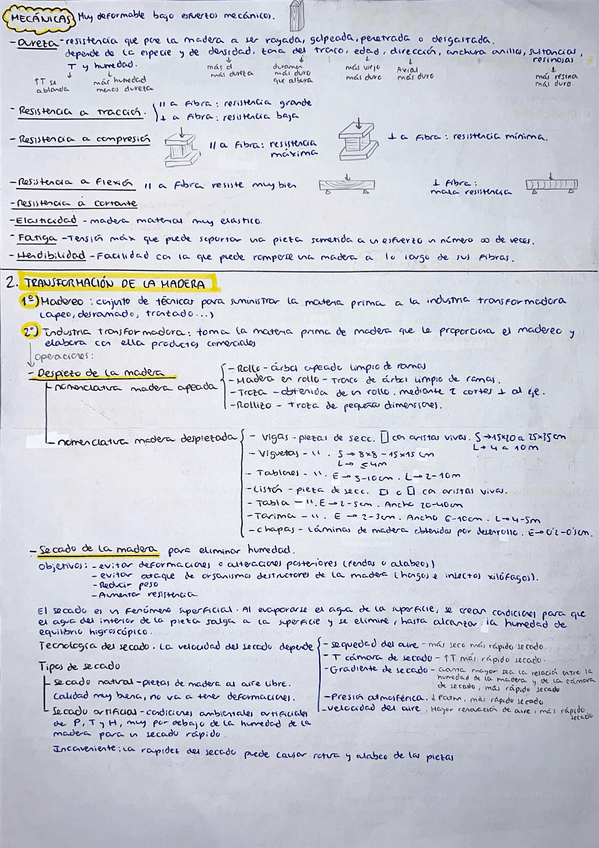 MECÁNICAS Muy deformable bajo esfuerzos mecánicos.
- Dureza - resistencia que pone la madera a ser rayada, golpeada, penetrada o desgastada.
depende de la especie y de densidad, zona del tronco, edad, dirección, anchura anillos, sustancias resinosas
T y humedad.
↑T se ablanda
más humedad menos dureza
más d más dureza
duramen más duro que albura
más viejo más duro
Axial más duro
más resina más duro
- Resistencia a tracción. // a Fibra: resistencia grande
⊥ a Fibra: resistencia baja
- Resistencia a compresión // a Fibra: resistencia máxima
⊥ a Fibra: resistencia mínima.
- Resistencia a Flexión // a Fibra resiste muy bien
⊥ Fibra: mala resistencia
- Resistencia a cortante
- Elasticidad - madera material muy elástico.
- Fatiga - Tensión máx que puede soportar una pieza sometida a un esfuerzo un número ∞ de veces.
- Hendibilidad - Facilidad con la que puede romperse una madera a lo largo de sus fibras.
2. TRANSFORMACIÓN DE LA MADERA
1º) Madereo: conjunto de técnicas para suministrar la materia prima a la industria transformadora
(apeo, desramado, tronzado...)
2º) Industria transformadora: toma la materia prima de madera que le proporciona el madereo y
elabora con ella productos comerciales
↓ operaciones:
- Despiezo de la madera
nomenclatura madera apeada
- Rollo - árbol apeado limpio de ramas
- Madera en rollo - Tronco de árbol limpio de ramas.
- Troza - obtenida de un rollo, mediante 2 cortes ⊥ al eje.
- Rollizo - Troza de pequeñas dimensiones.
nomenclatura madera despiezada
- Vigas - piezas de secc. □ con aristas vivas. S→15x20 a 25x35cm
L→ 4 a 10m
- Viguetas - ''. S→ 8x8 - 15x15 cm
L→ ≤4m
- Tablones - ''. E→ 5-10cm. L→ 2-10m
- Listón - pieza de secc. □ o □ con aristas vivas.
- Tabla - ''. E→ 2-5cm. Ancho 20-40cm
- Tarima - ''. E→ 2-3cm. Ancho 6-10cm. L→ 4-5m
- Chapas - Láminas de madera obtenidas por desenrollo. E→ 0'2-0'5cm.
- Secado de la madera para eliminar humedad.
Objetivos: - evitar deformaciones o alteraciones posteriores (fendas o alabeos)
- evitar ataque de organismos destructores de la madera (hongos e insectos xilófagos).
- Reducir peso
- Aumentar resistencia
El secado es un fenómeno superficial. Al evaporarse el agua de la superficie, se crean condiciones para que
el agua del interior de la pieza salga a la superficie y se elimine, hasta alcanzar la humedad de
equilibrio higroscópico.
Tecnología del secado. La velocidad del secado depende
- sequedad del aire - más seco más rápido secado.
- T cámara de secado - ↑T más rápido secado
- Gradiente de secado - cuanta mayor sea la relación entre la
humedad de la madera y de la cámara
de secado, más rápido secado
- Presión atmosférica. ↓Patm, más rápido secado
- velocidad del aire. Mayor renovación de aire, más rápido
secado
Tipos de secado
Secado natural - piezas de madera al aire libre.
Calidad muy buena, no va a tener deformaciones.
Secado artificial - condiciones ambientales artificiales
de P, T y H, muy por debajo de la humedad de la
madera para un secado rápido.
Inconveniente: La rapidez del secado puede causar rotura y alabeo de las piezas